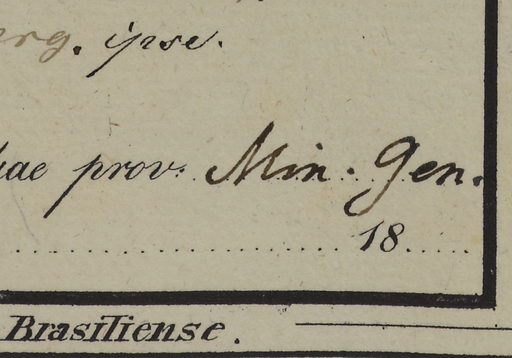 ipse.
prov. Min. Gen.
18
Brasiliense.